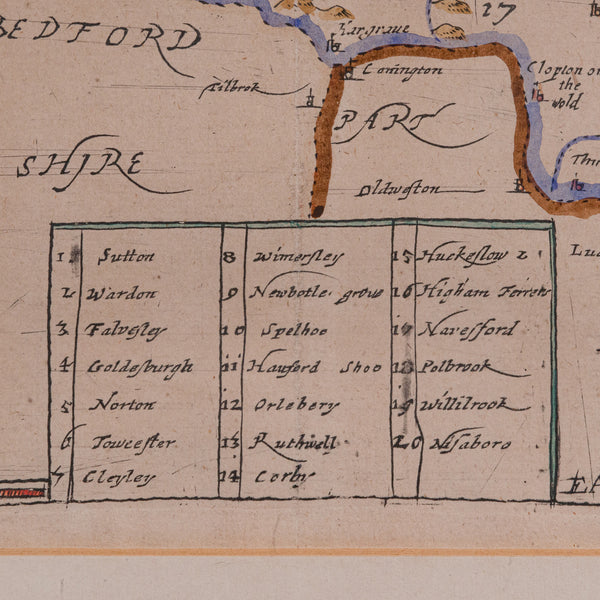 BEDFORD
SHIRE
Kargrave
16
17
Conington
Tilbrok
Clopton on
the
wold
16
PART
Thu
16
Oldweston
B
Luc
1 Sutton
2 Wardon
3 Falvesley
4 Goldesburgh
5 Norton
6 Towcester
7 Cleyley
8 Wimersley
9 Newbotle grove
10 Spelhoo
11 Hauford Shoo
12 Orlebery
13 Ruthwell
14 Corby
15 Huckeslow
16 Higham Ferrers
17 Navesford
18 Polbrook
19 Willibrook
20 Nisaboro
EA